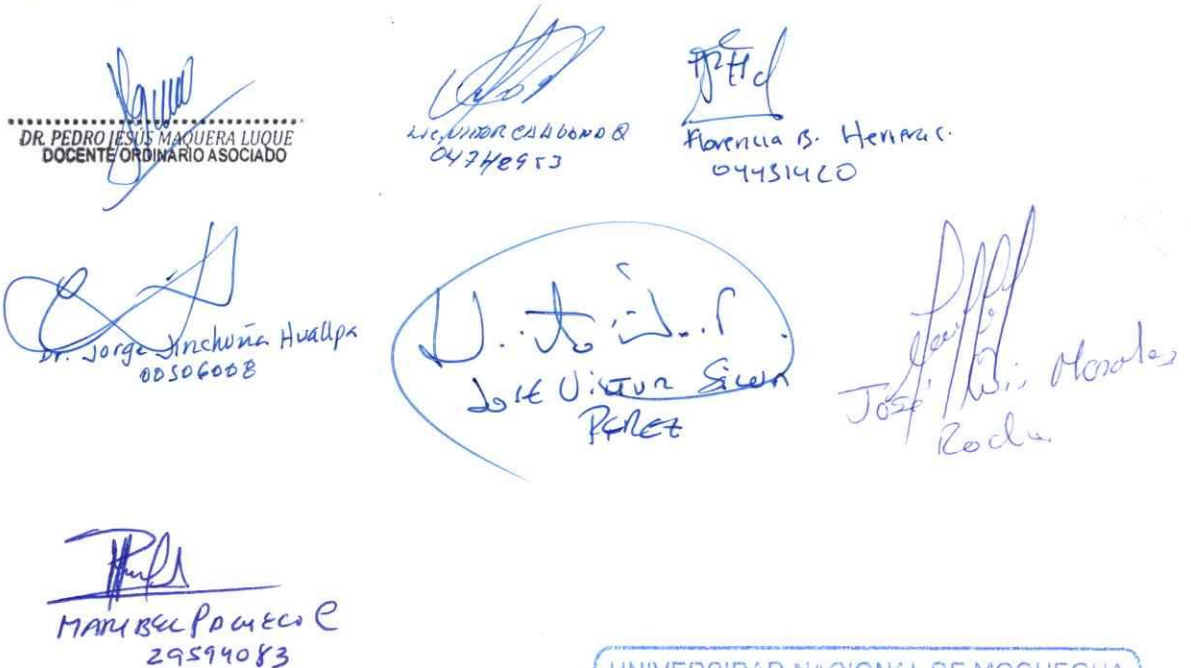 DR. PEDRO JESÚS MAQUERA LUQUE
DOCENTE ORDINARIO ASOCIADO
04742953
Florencia B. Herrera C.
04431420
Dr. Jorge Jinchuña Huallpa
00506008
José Victor Sicun
PEREZ
José Luis Morales
Rocha
MARIBEL PACHECO C
29594083
UNIVERSIDAD NACIONAL DE MOQUEGUA